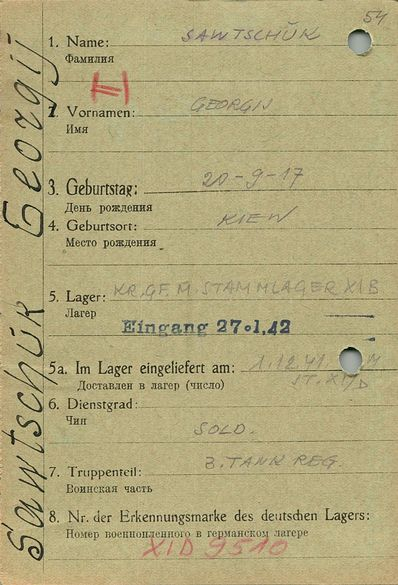 54
1. Name: SAWTSCHUK
Фамилия
2. Vornamen: GEORGIJ
Имя
3. Geburtstag: 20-9-17
День рождения
4. Geburtsort: KIEW
Место рождения
5. Lager: KR.GF.M.STAMMLAGER XIB
Лагер
Eingang 27.1.42
5a. Im Lager eingeliefert am: 1.12.41
Доставлен в лагер (число)
6. Dienstgrad:
Чин
SOLD.
7. Truppenteil: 3.TANK REG.
Воинская часть
8. Nr. der Erkennungsmarke des deutschen Lagers:
Номер военнопленного в германском лагере
XID 9510
Sawtschuk Georgij